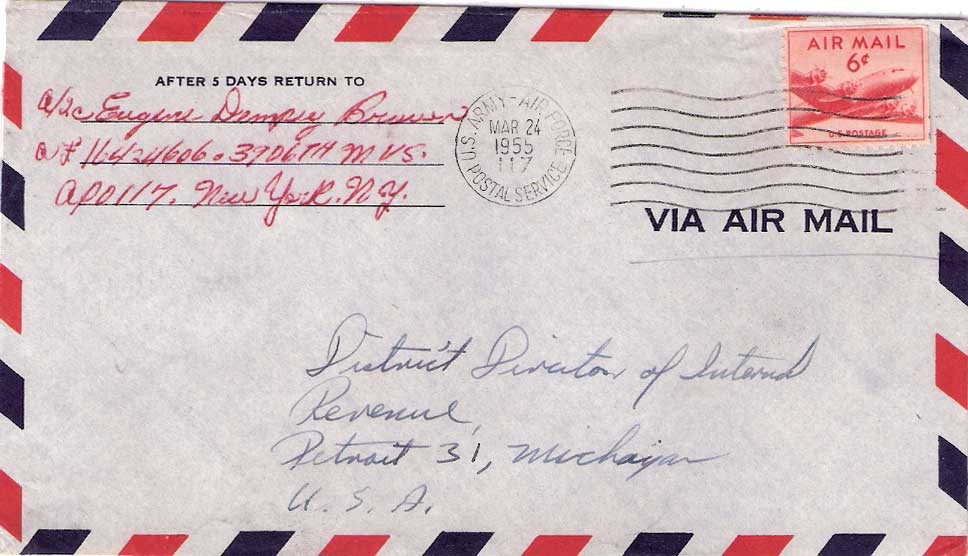 AFTER 5 DAYS RETURN TO
A/2c Eugene Dempsey
AF 16424606 . 3906TH MVS.
APO 117. New York. N.Y.
U.S. ARMY-AIR FORCE
MAR 24
1955
117
POSTAL SERVICE
AIR MAIL
6¢
U.S. POSTAGE
VIA AIR MAIL
District Director of Internal
Revenue,
Detroit 31, Michigan
U. S. A.